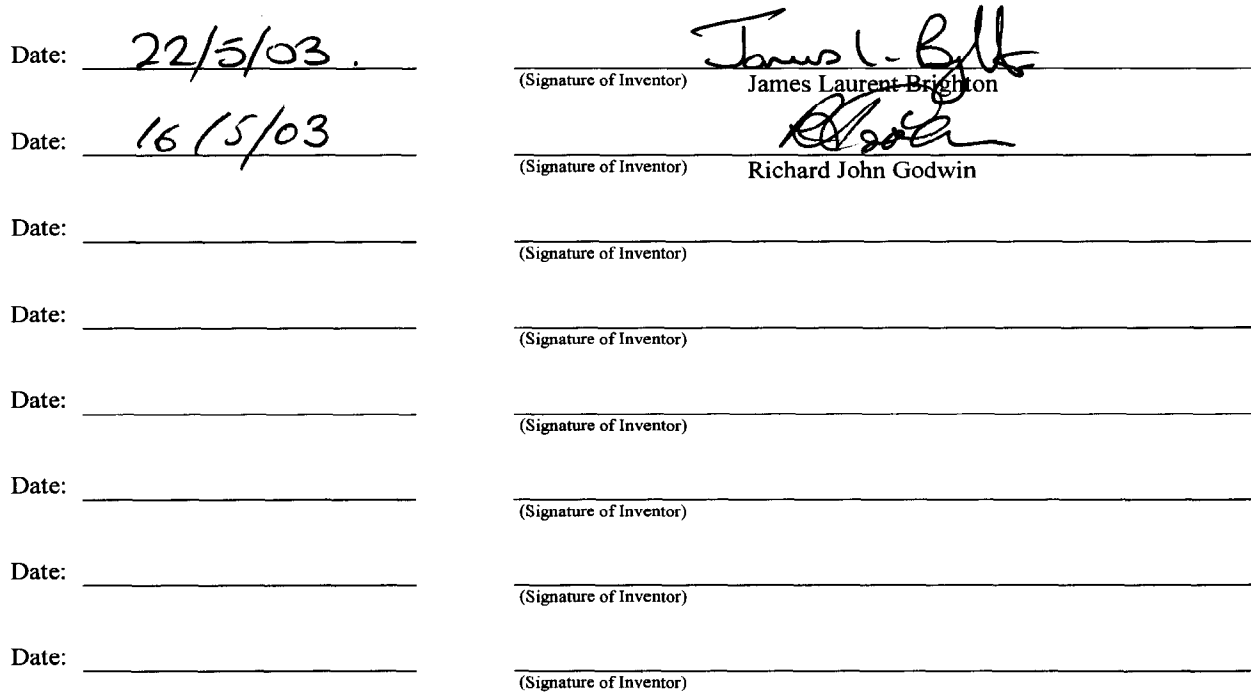 Date: 22/5/03. James L. Brighton
(Signature of Inventor) James Laurent Brighton
Date: 16/5/03
(Signature of Inventor) Richard John Godwin
Date:
(Signature of Inventor)
Date:
(Signature of Inventor)
Date:
(Signature of Inventor)
Date:
(Signature of Inventor)
Date:
(Signature of Inventor)
Date:
(Signature of Inventor)